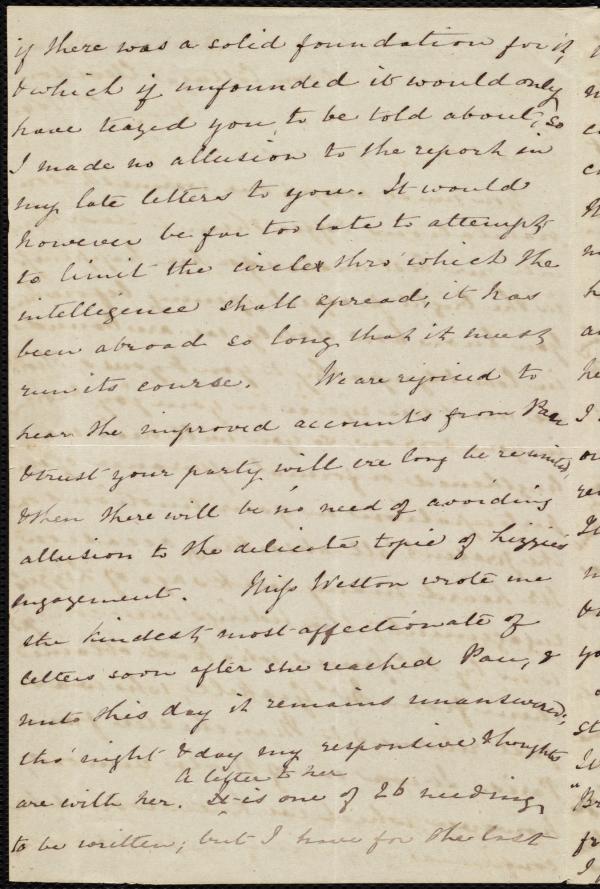 if there was a solid foundation for it,
& which if unfounded it would only
have teazed you, to be told about, so
I made no allusion to the report in
my late letters to you. It would
however be far too late to attempt
to limit the circle thro' which the
intelligence shall spread, it has
been abroad so long that it must
run its course. We are rejoiced to
hear the improved accounts from Pau
& trust your party will ere long be reunited,
& then there will be no need of avoiding
allusion to the delicate topic of Lizzie's
engagement. Miss Weston wrote me
the kindest most affectionate of
letters soon after she reached Pau, &
unto this day it remains unanswered;
tho' night & day my responsive thoughts
A letter to her
are with her. It is one of 26 needing
to be written; but I have for the last